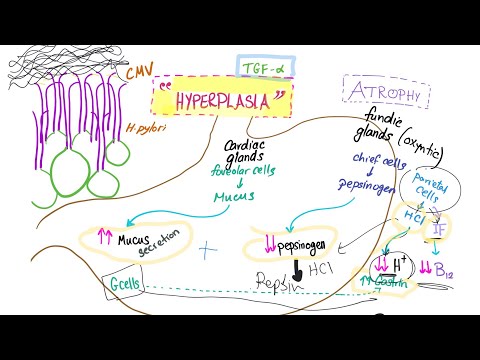 CMV
H.pylori
TGF-α
"HYPERPLASIA"
Cardiac
glands
foveolar cells
↓
Mucus
↑↑ Mucus
secretion
+
ATROPHY
fundic
glands (oxyntic)
chief cells
↓
pepsinogen
↓↓ pepsinogen
↓ HCl
Pepsin
Parietal
cells
HCl
IF
↓↓ H+
↑↑ Gastrin
↓↓ B12
G cells